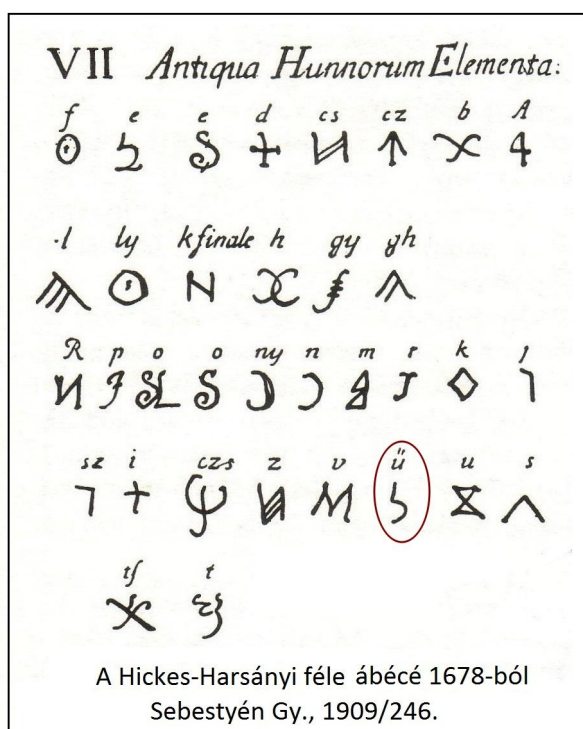 VII Antiqua Hunnorum Elementa:
f e e d cs cz b A
l ly k finale h gy gh
R p o o ny n m r k j
sz i czs z v ű u s
tſ t
A Hickes-Harsányi féle ábécé 1678-ból
Sebestyén Gy., 1909/246.